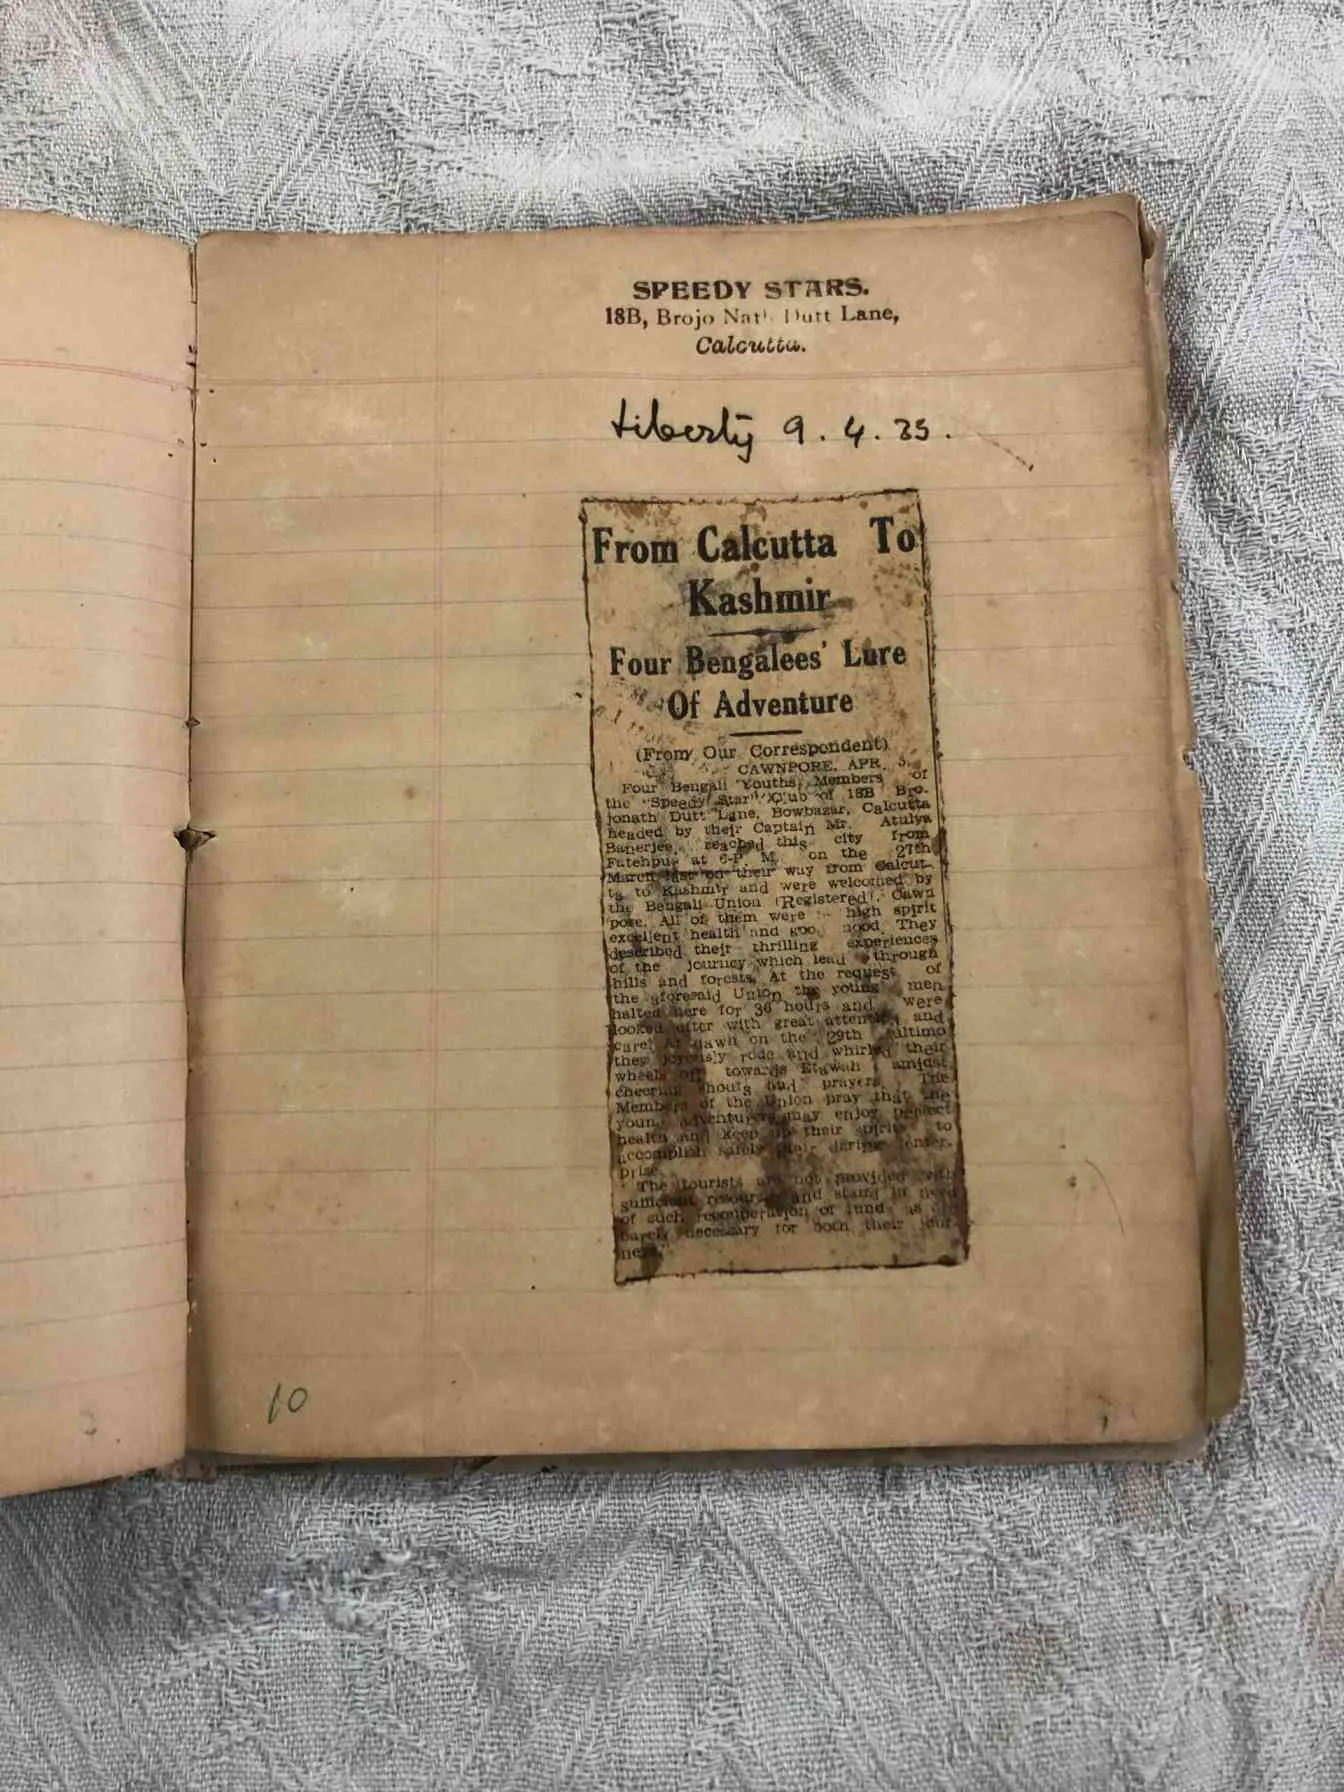 SPEEDY STARS.
18B, Brojo Nath Dutt Lane,
Calcutta.
Liberty 9.4.35.
From Calcutta To
Kashmir
Four Bengalees' Lure
Of Adventure
(From Our Correspondent)
CAWNPORE, APR. 5.
Four Bengali Youths, Members of
the "Speedy Star" Club of 18B Bro-
jonath Dutt Lane, Bowbazar, Calcutta
headed by their Captain Mr. Atulya
Banerjee, reached this city from
Fatehpur at 6-P. M. on the 27th
March last on their way from Calcut-
ta to Kashmir and were welcomed by
the Bengali Union (Registered), Cawn
pore. All of them were high spirit
excellent health and They
described their thrilling experiences
of the journey which lead through
hills and forests. At the request of
the aforesaid Union the young men
halted here for 36 hours and were
looked after with great attention and
care. At dawn on the 29th ultimo
they joyously rode and whirled their
wheels off towards Etawah amidst
cheering shouts and prayers. The
Members of the Union pray that the
young adventurers may enjoy perfect
health and keep up their spirits to
accomplish safely their daring enter-
prise.
The tourists are not provided with
sufficient resources and stand in need
of such recouperation of fund as are
barely necessary for both their jour-
ney."
10